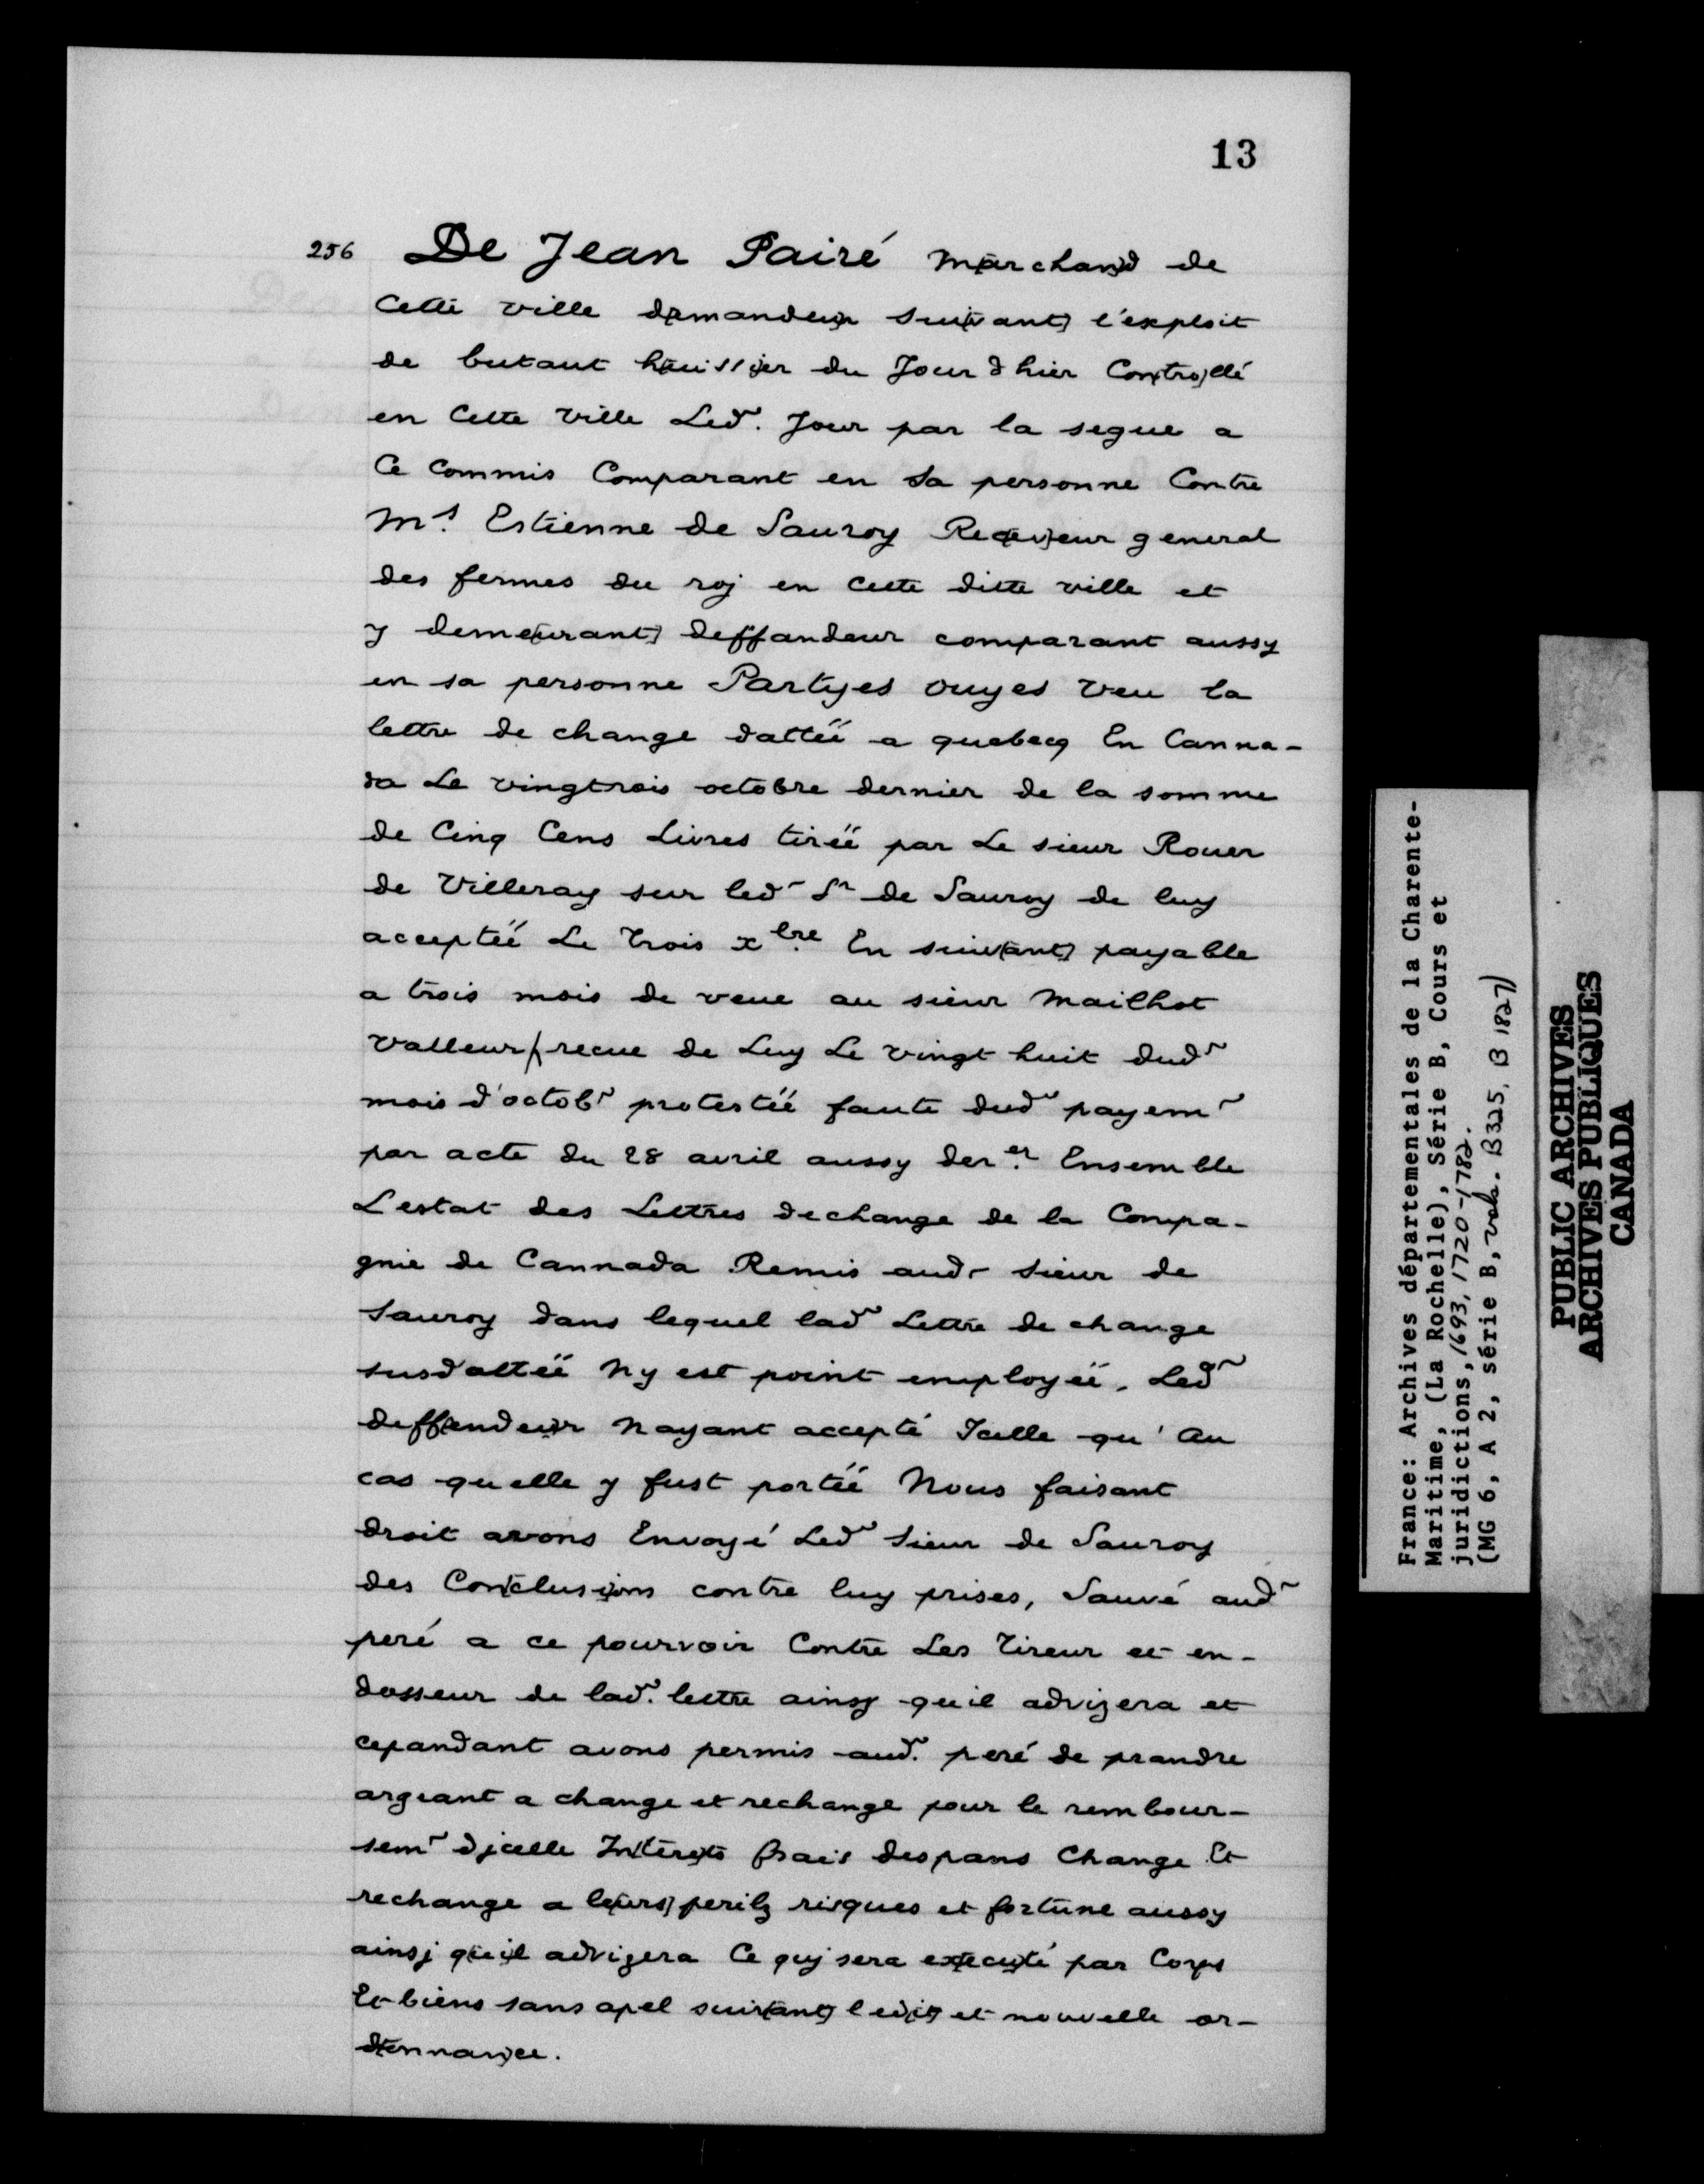 13
256 De Jean Pairé marchand de
Cette ville demandeur suivant l'exploit
de butaut huissier du Jour d hier Controllé
en Cette ville Led. Jour par la segue a
Ce Commis Comparant en sa personne Contre
Mr Estienne de Sauroy Receveur general
des fermes du roj en cette ditte ville et
y demeurant deffandeur comparant aussy
en sa personne Partyes ouyes veu la
lettre de change dattéé a quebecq En Canna-
da Le vingtrois octobre dernier de la somme
de Cinq Cens Livres tiréé par Le sieur Rouer
de Villeray sur led Sr de Sauroy de luy
acceptéé Le trois xbre En suivant payable
a trois mois de veue au sieur Mailhot
valleur recue de Luy Le vingt huit dud
mois d'octobr protestéé faute dud payem
par acte du 28 avril aussy derer Ensemble
L'estat des Lettres dechange de la Compa-
gnie de Cannada Remis aud sieur de
Sauroy dans lequel lad Lettre de change
susdattéé N y est point employéé, Led
deffendeur Nayant accepté Icelle qu' Au
cas quelle y fust portéé Nous faisant
droit avons Envoyé Led Sieur de Sauroy
des Conclusions contre luy prises, Sauvé aud
peré a ce pourvoir Contre Les tireur et en-
dosseur de lad. lettre ainsy qu'il advizera et
cepandant avons permis aud. peré de prandre
argeant a change et rechange pour le rembour-
sem djcelle Interets frais despans Change Et
rechange a leurs perilz risques et fortune aussy
ainsj qu'il advizera Ce quj sera executé par Corps
Et biens sans apel suivant l edit et nouvelle or-
donnance.
France: Archives départementales de la Charente-
Maritime, (La Rochelle), Série B, Cours et
juridictions, 1693, 1720-1782.
(MG 6, A 2, série B, vols. B325, B 1827)
PUBLIC ARCHIVES
ARCHIVES PUBLIQUES
CANADA